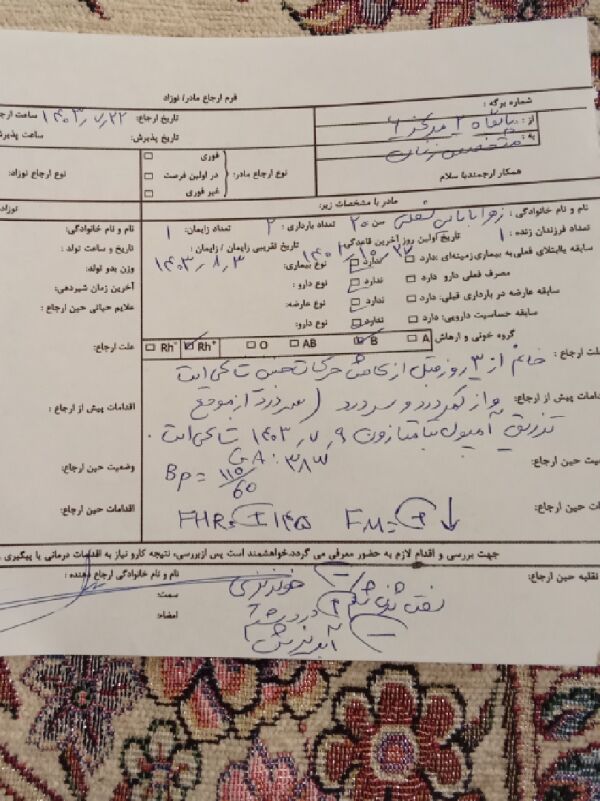 فرم ارجاع مادر/ نوزاد
شماره برگه :
از : پایگاه ۲ مرکز ۶
به : متخصص زنان
تاریخ ارجاع: ۱۴۰۳٫۷٫۲۲ ساعت ارجا
تاریخ پذیرش: ساعت پذیرش
همکار ارجمند با سلام
نوع ارجاع مادر: فوری
در اولین فرصت
غیر فوری
نوع ارجاع نوزاد:
مادر با مشخصات زیر:
نوزاد
نام و نام خانوادگی : زهرا بابائی سن ۲۰ تعداد بارداری : ۲ تعداد زایمان: ۱
تعداد فرزندان زنده : ۱ تاریخ اولین روز آخرین قاعدگی: تاریخ تقریبی زایمان / زایمان: ۱۴۰۳٫۸٫۳
سابقه یاابتلای فعلی به بیماری زمینه‌ای: دارد ندارد نوع بیماری:
مصرف فعلی دارو دارد ندارد نوع دارو :
سابقه عارضه در بارداری قبلی: دارد ندارد نوع عارضه:
سابقه حساسیت دارویی: دارد ندارد نوع دارو:
گروه خونی و ارهاش A B AB O Rh+ Rh-
نام و نام خانوادگی:
تاریخ و ساعت تولد :
وزن بدو تولد:
آخرین زمان شیردهی:
علایم حیاتی حین ارجاع :
علت ارجاع:
علت ارجاع: خانم از ۳ روز قبل از کاهش حرکات جنین شاکی است
اقدامات پیش از ارجاع: و از کمر درد و سر درد ( سردرد از موقع
تزریق آمپول بتامتازون ۱۴۰۳٫۷٫۹ شاکی است .
اقدامات پیش از ارجاع:
وضعیت حین ارجاع: GA: ۳۸w
BP = 110/60
وضعیت حین ارجاع:
اقدامات حین ارجاع: FHR= ۱۴۵ FM= + ↓
اقدامات حین ارجاع:
جهت بررسی و اقدام لازم به حضور معرفی می گردد.خواهشمند است پس ازبررسی، نتیجه کارو نیاز به اقدامات درمانی یا پیگیری
نقلیه حین ارجاع: خونریزی
نام و نام خانوادگی ارجاع دهنده :
سمت:
امضاء:
درد
آبریزش